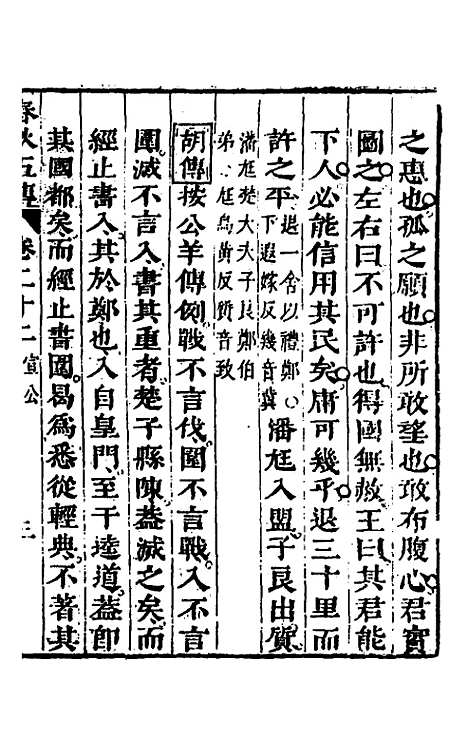 之惠也孤之願也非所敢望也敢布腹心君實
圖之左右曰不可許也得國無赦王曰其君能
下人必能信用其民矣庸可幾乎退三十里而
許之平退一舍以禮鄭○下遐嫁反幾音冀潘尫入盟子良出質
潘尫楚大夫子良鄭伯弟○尫烏黃反質音致
胡傳按公羊傳例戰不言伐圍不言戰入不言
圍滅不言入書其重者楚子縣陳蓋滅之矣而
經止書入其於鄭也入自皇門至于逵道蓋即
其國都矣而經止書圍曷爲悉從輕典不著其
春秋五傳 卷二十二 宣公 三